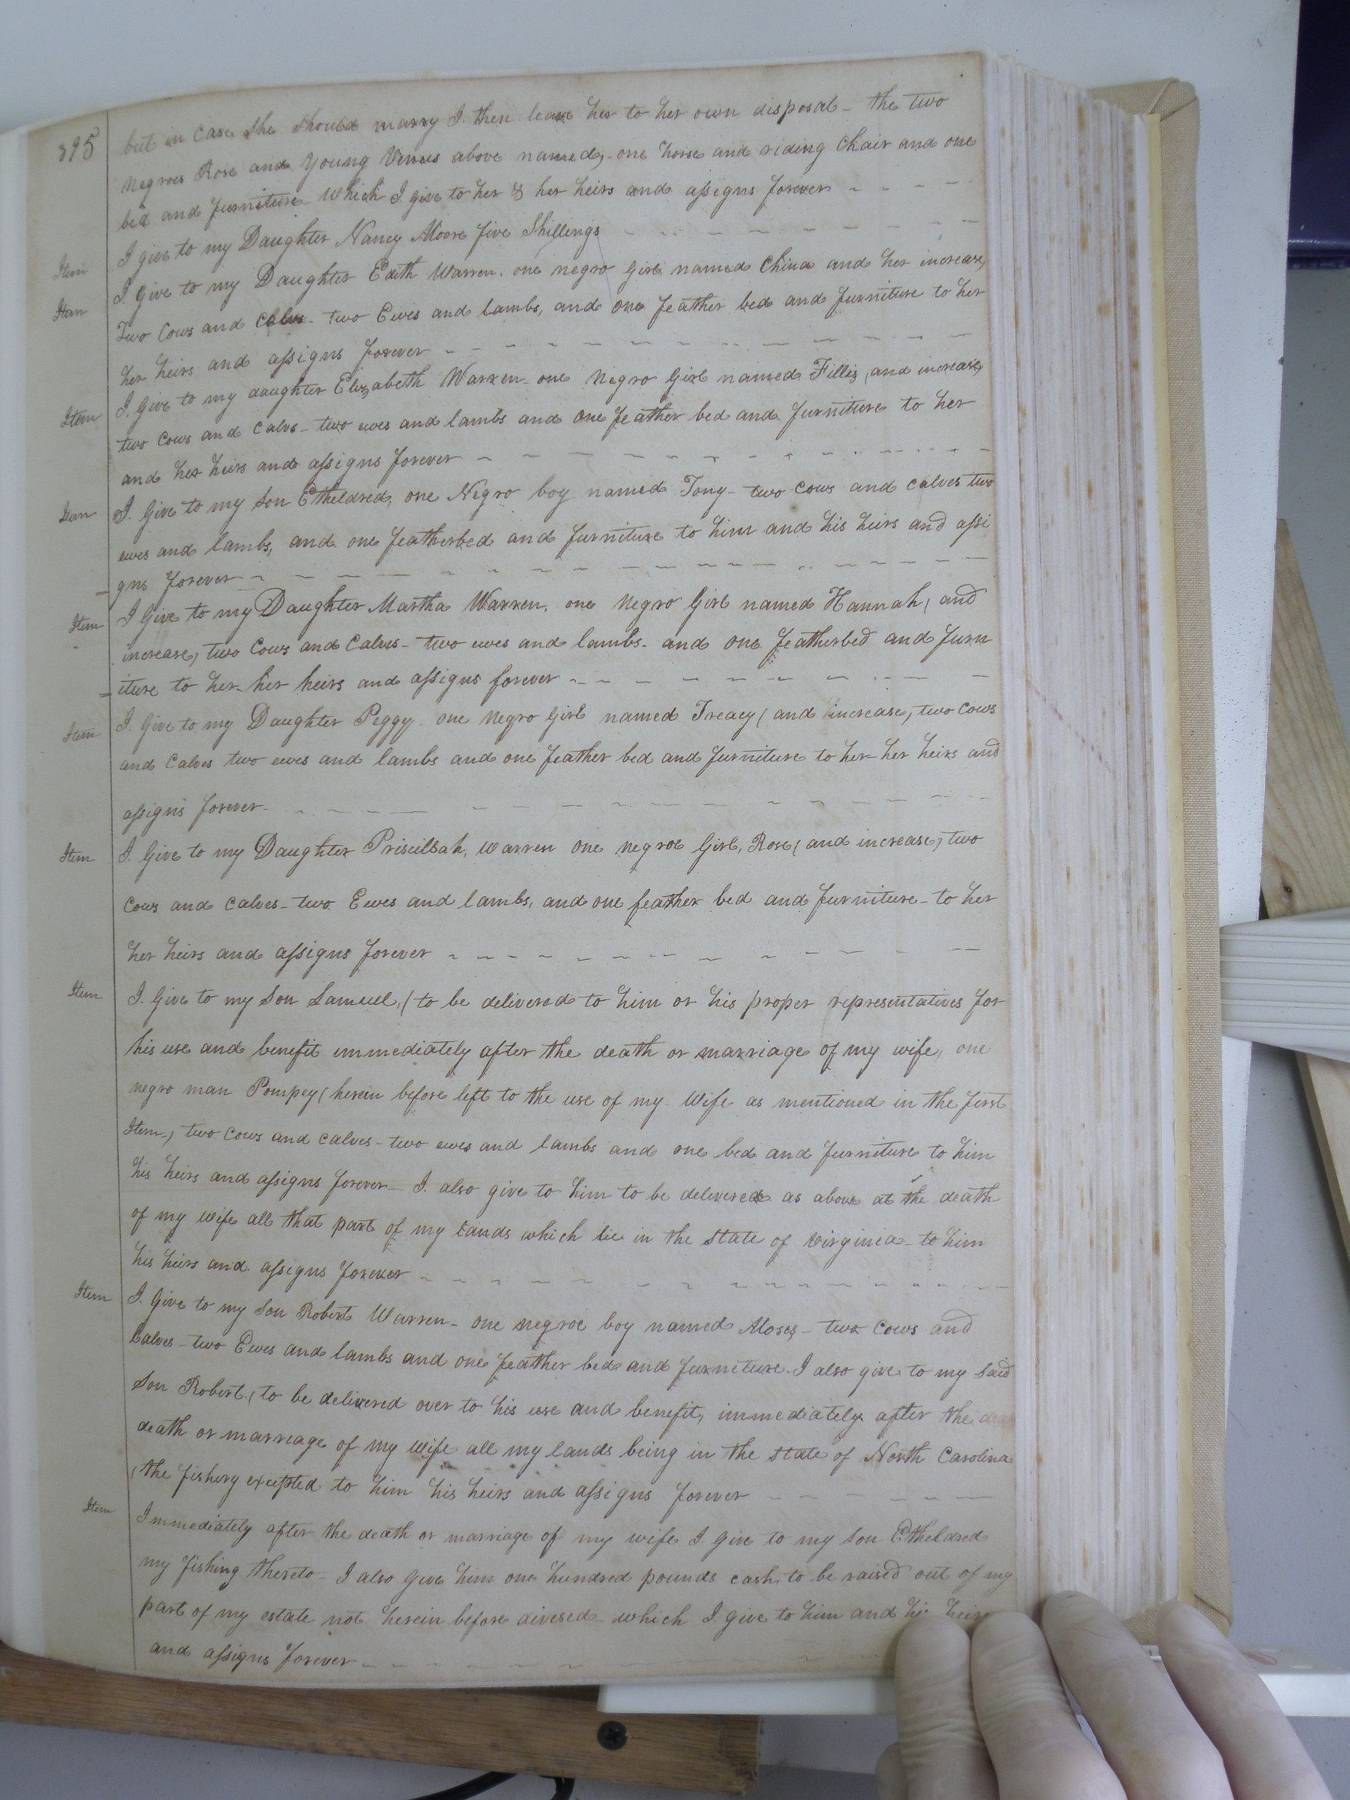 395
but in case she should marry I then leave her to her own disposal - the two
negroes Rose and Young Venus above named, one horse and riding Chair and one
bed and furniture which I give to her & her heirs and assigns forever
Item I give to my Daughter Nancy Moore five Shillings
Item I Give to my Daughter Edith Warren. one negro Girl named China and her increase
Two Cows and calves - two Ewes and lambs, and one feather bed and furniture to her
her heirs and assigns forever
Item I Give to my daughter Elizabeth Warren - one Negro Girl named Fillis (and increase)
two cows and calves - two ewes and lambs and one feather bed and furniture to her
and her heirs and assigns forever
Item I. Give to my son Etheldred, one Negro boy named Tony - two cows and calves two
ewes and lambs, and one featherbed and furniture to him and his heirs and assi
gns forever
Item I Give to my Daughter Martha Warren, one negro Girl named Hannah, (and
increase) two Cows and Calves - two ewes and lambs. and one featherbed and furn
iture to her - her heirs and assigns forever
Item I. Give to my Daughter Peggy one negro Girl named Treacy (and increase) two cows
and calves two ewes and lambs and one feather bed and furniture to her her heirs and
assigns forever
Item I. Give to my Daughter Priscillah, Warren one negroe Girl, Rose (and increase) two
cows and calves - two Ewes and lambs, and one feather bed and furniture - to her
her heirs and assigns forever
Item I. Give to my son Samuel, (to be delivered to him or his proper representatives for
his use and benefit immediately after the death or marriage of my wife, one
negro man Pompey (herein before left to the use of my Wife as mentioned in the first
Item) two cows and calves - two ewes and lambs and one bed and furniture to him
his heirs and assigns forever - I. also give to him to be delivered as above at the death
of my wife all that part of my lands which lie in the state of virginia - to him
his heirs and assigns forever
Item I. Give to my son Robert Warren - one negroe boy named Moses - two cows and
Calves - two Ewes and lambs and one feather bed and furniture. I also give to my said
son Robert, (to be delivered over to his use and benefit, immediately after the
death or marriage of my wife all my lands being in the state of North Carolina
(the fishery excepted to him his heirs and assigns forever
Item Immediately after the death or marriage of my wife I give to my son Etheldred
my fishing thereto - I also Give him one hundred pounds cash to be raised out of my
part of my estate not herein before divised which I give to him and his heirs
and assigns forever